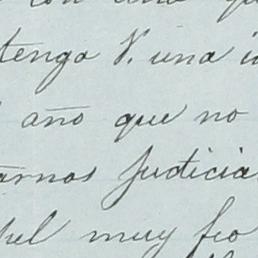 con una que
tenga V. una i
año que no
arnos Judicia
pel muy feo